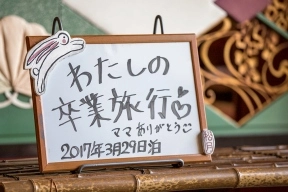 わたしの
卒業旅行♡
ママありがとう
2017年3月29日泊